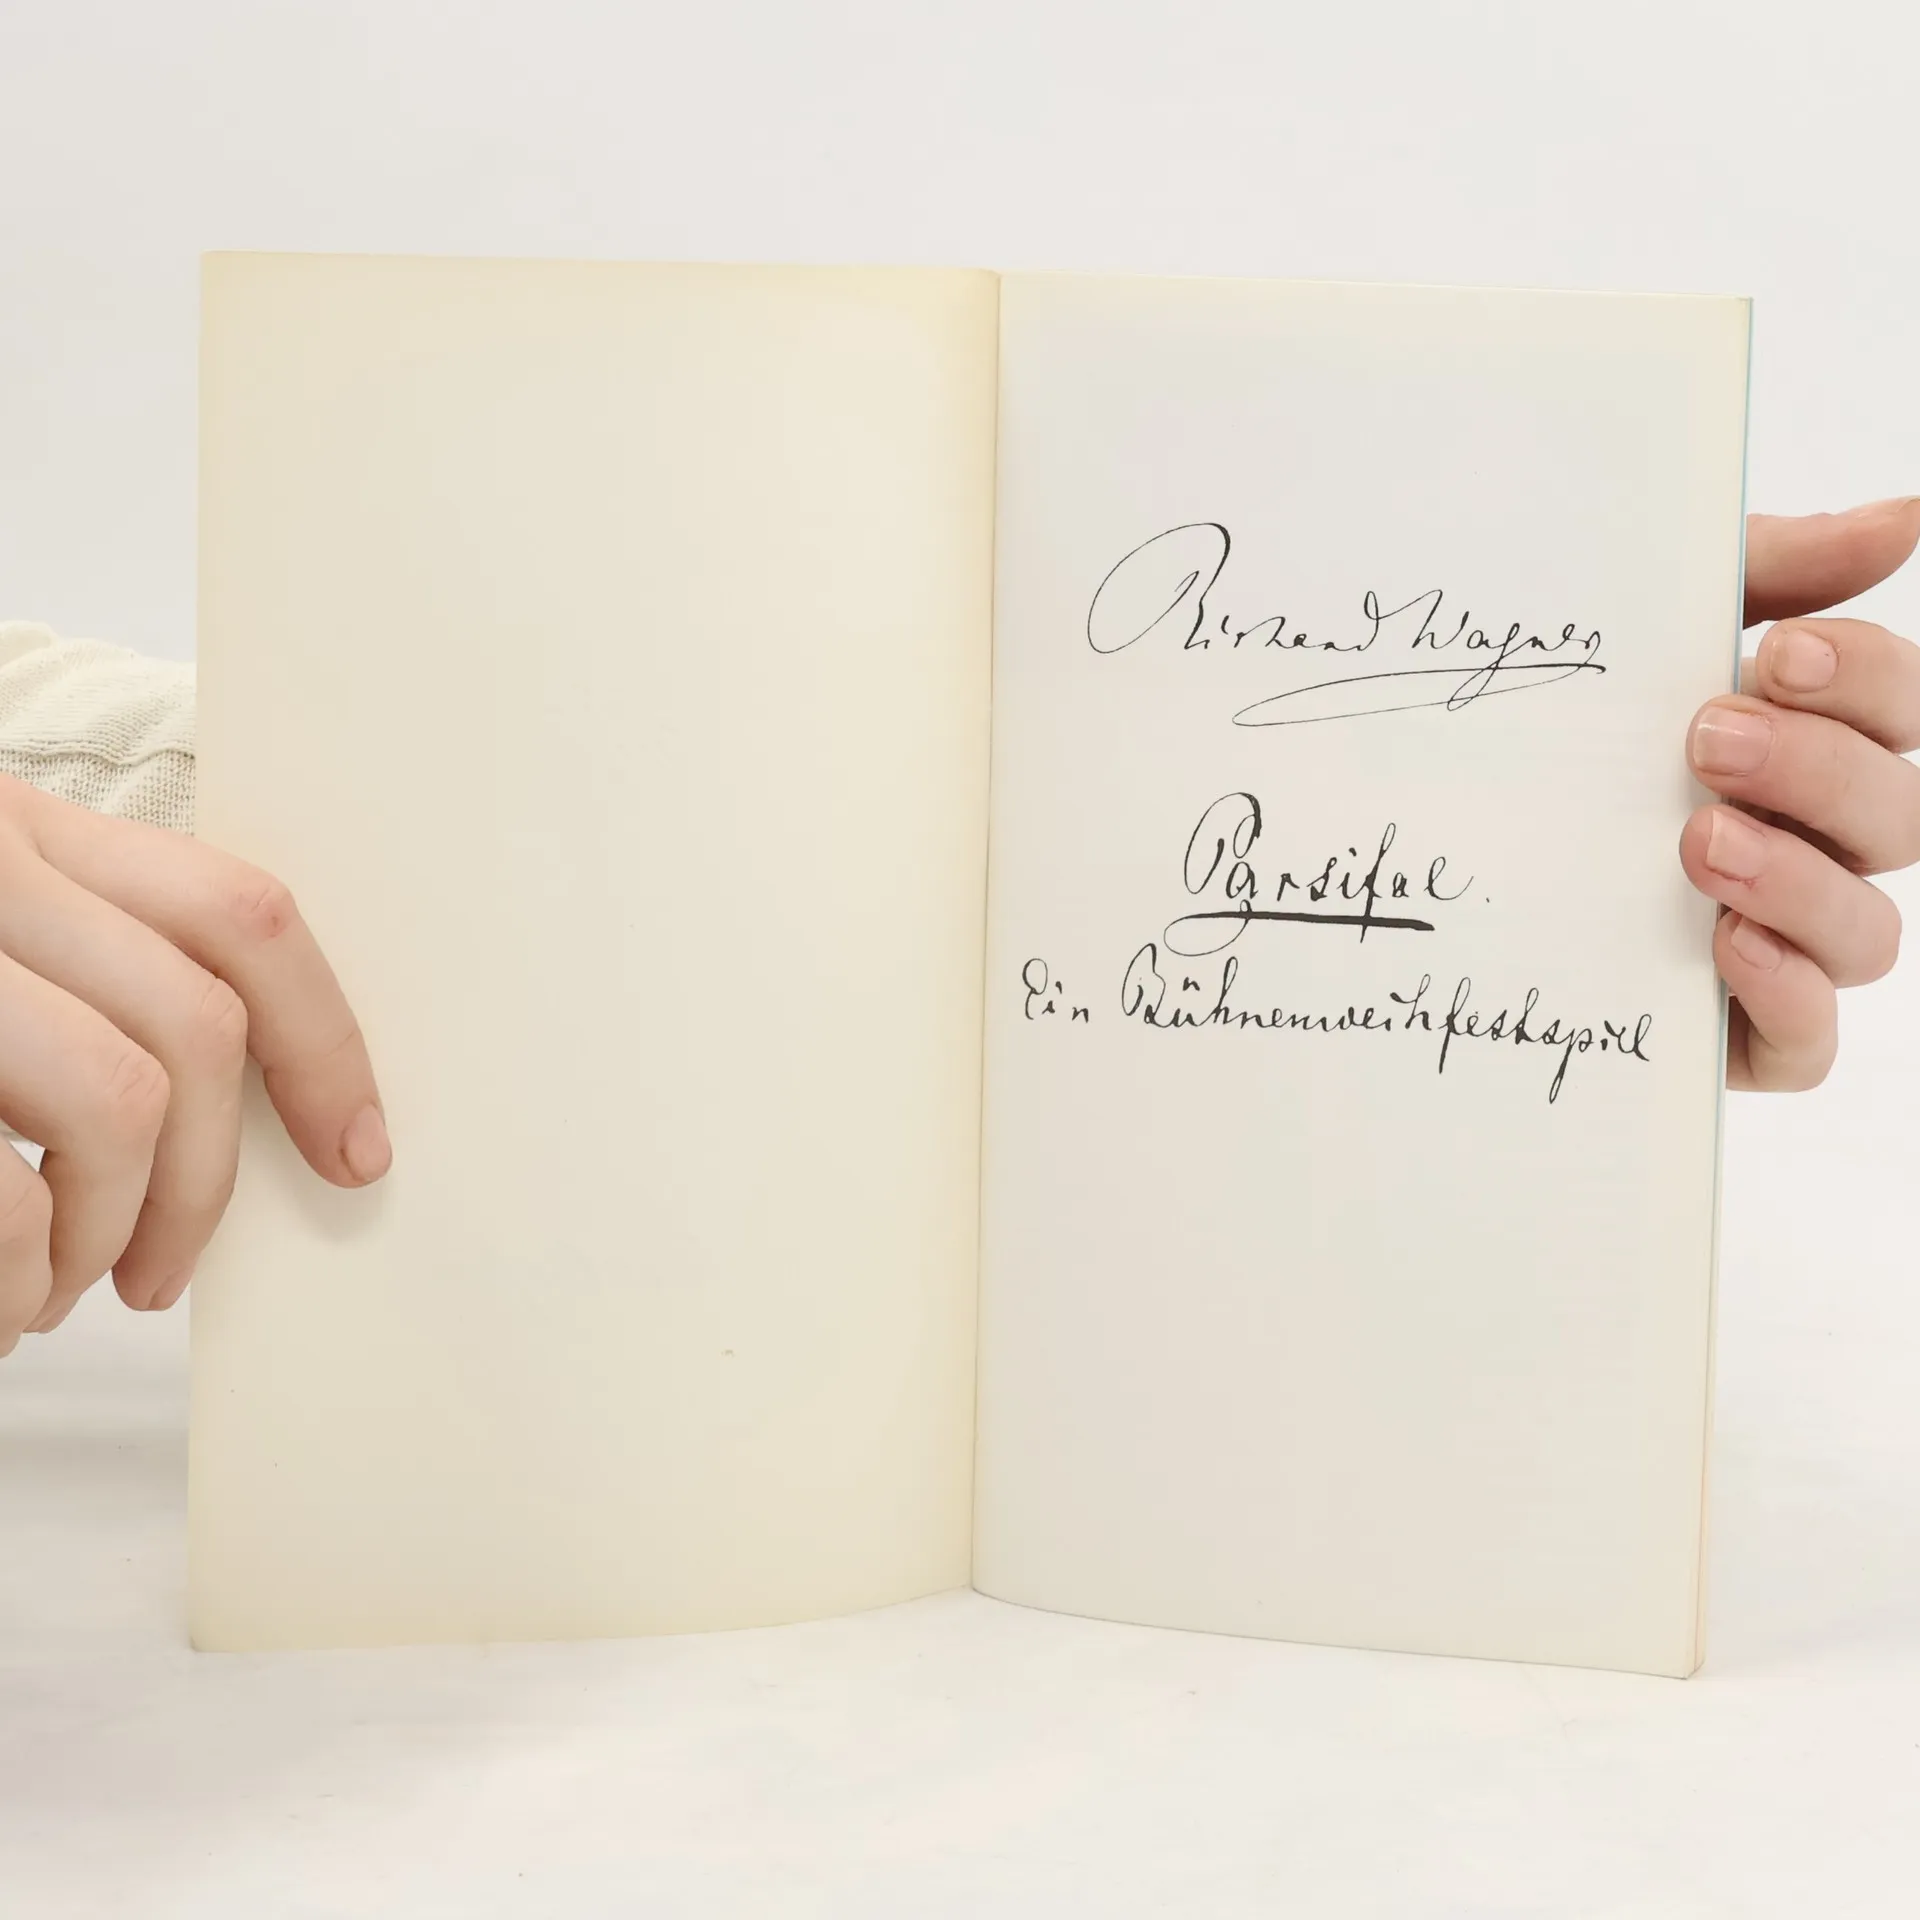 Richard Wagner
Parsifal.
Ein Bühnenweihfestspiel